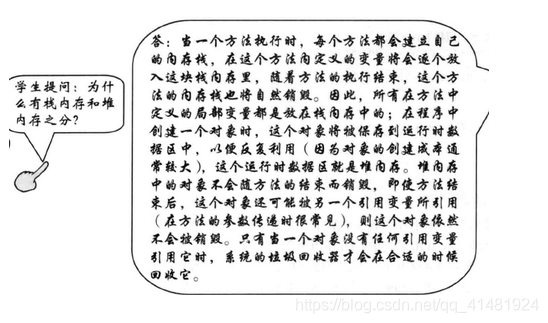 学生提问：为什
么有栈内存和堆
内存之分？
答：当一个方法执行时，每个方法都会建立自己
的内存栈，在这个方法内定义的变量将会逐个放
入这块栈内存里，随着方法的执行结束，这个方
法的内存栈也将自然销毁。因此，所有在方法中
定义的局部变量都是放在栈内存中的；在程序中
创建一个对象时，这个对象将被保存到运行时数
据区中，以便反复利用（因为对象的创建成本通
常较大），这个运行时数据区就是堆内存。堆内存
中的对象不会随方法的结束而销毁，即使方法结
束后，这个对象还可能被另一个引用变量所引用
（在方法的参数传递时很常见），则这个对象依然
不会被销毁。只有当一个对象没有任何引用变量
引用它时，系统的垃圾回收器才会在合适的时候
回收它。
https://blog.csdn.net/qq_41481924